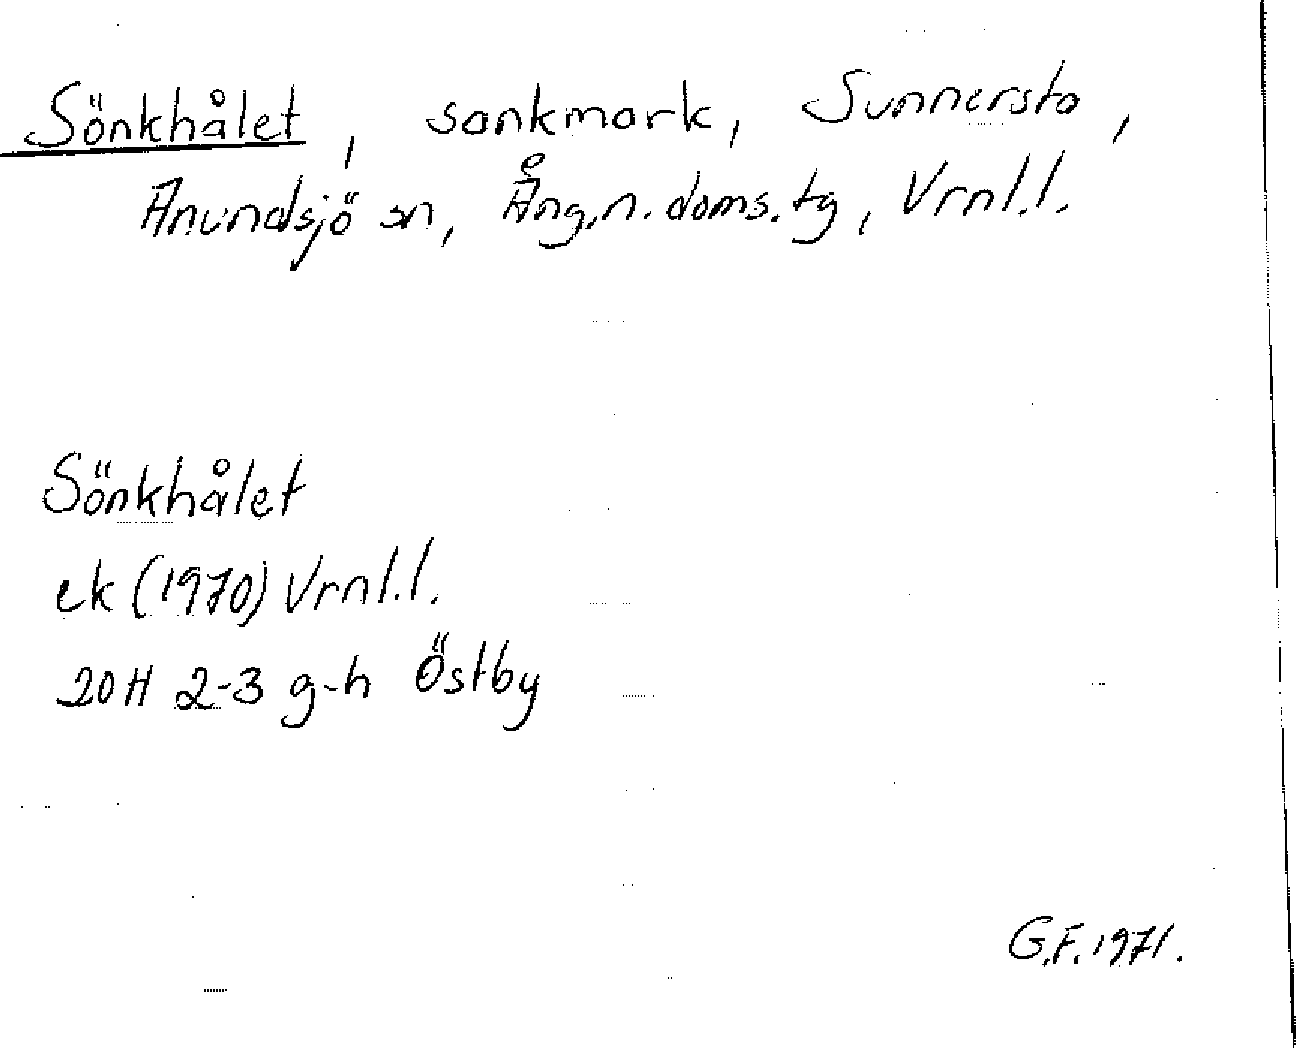 Sönkhålet, sankmark, Sunnersta,
Anundsjö sn, Ång.n. doms. tg, Vrnl.l.
Sönkhålet
ek (1970) Vrnl.l.
20H 2-3 g-h Östby
G.F. 1971.